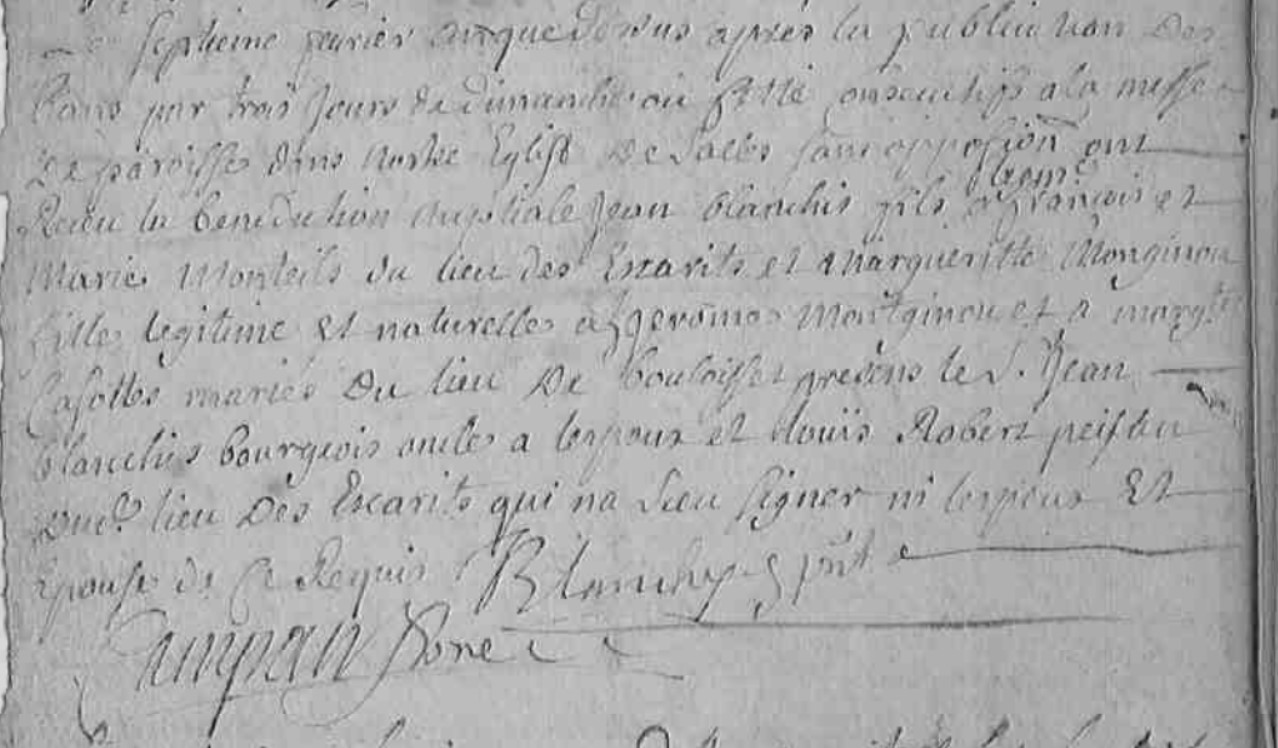 septieme fevrier an que dessus apres la publication des
bans par trois jours de dimanche ou feste consecutifs a la messe
de paroisse dans nostre Eglise de Salles sans opposion ont
Receu la benediction nuptiale Jean blanchis fils a françois et
Marie Monteils du lieu des Escarits et Margueritte Monginou
fille legitime et naturelle a Jerome Montginou et a margte
Casottes mariés Du lieu De bouloisse presens le S. Jean
blanchis bourgeois oncle a lespoux et louïs Robert
Dud. lieu Des Escarits qui na sceu signer ni lespoux Et
Epouse de ce Requis Blanchy pnt